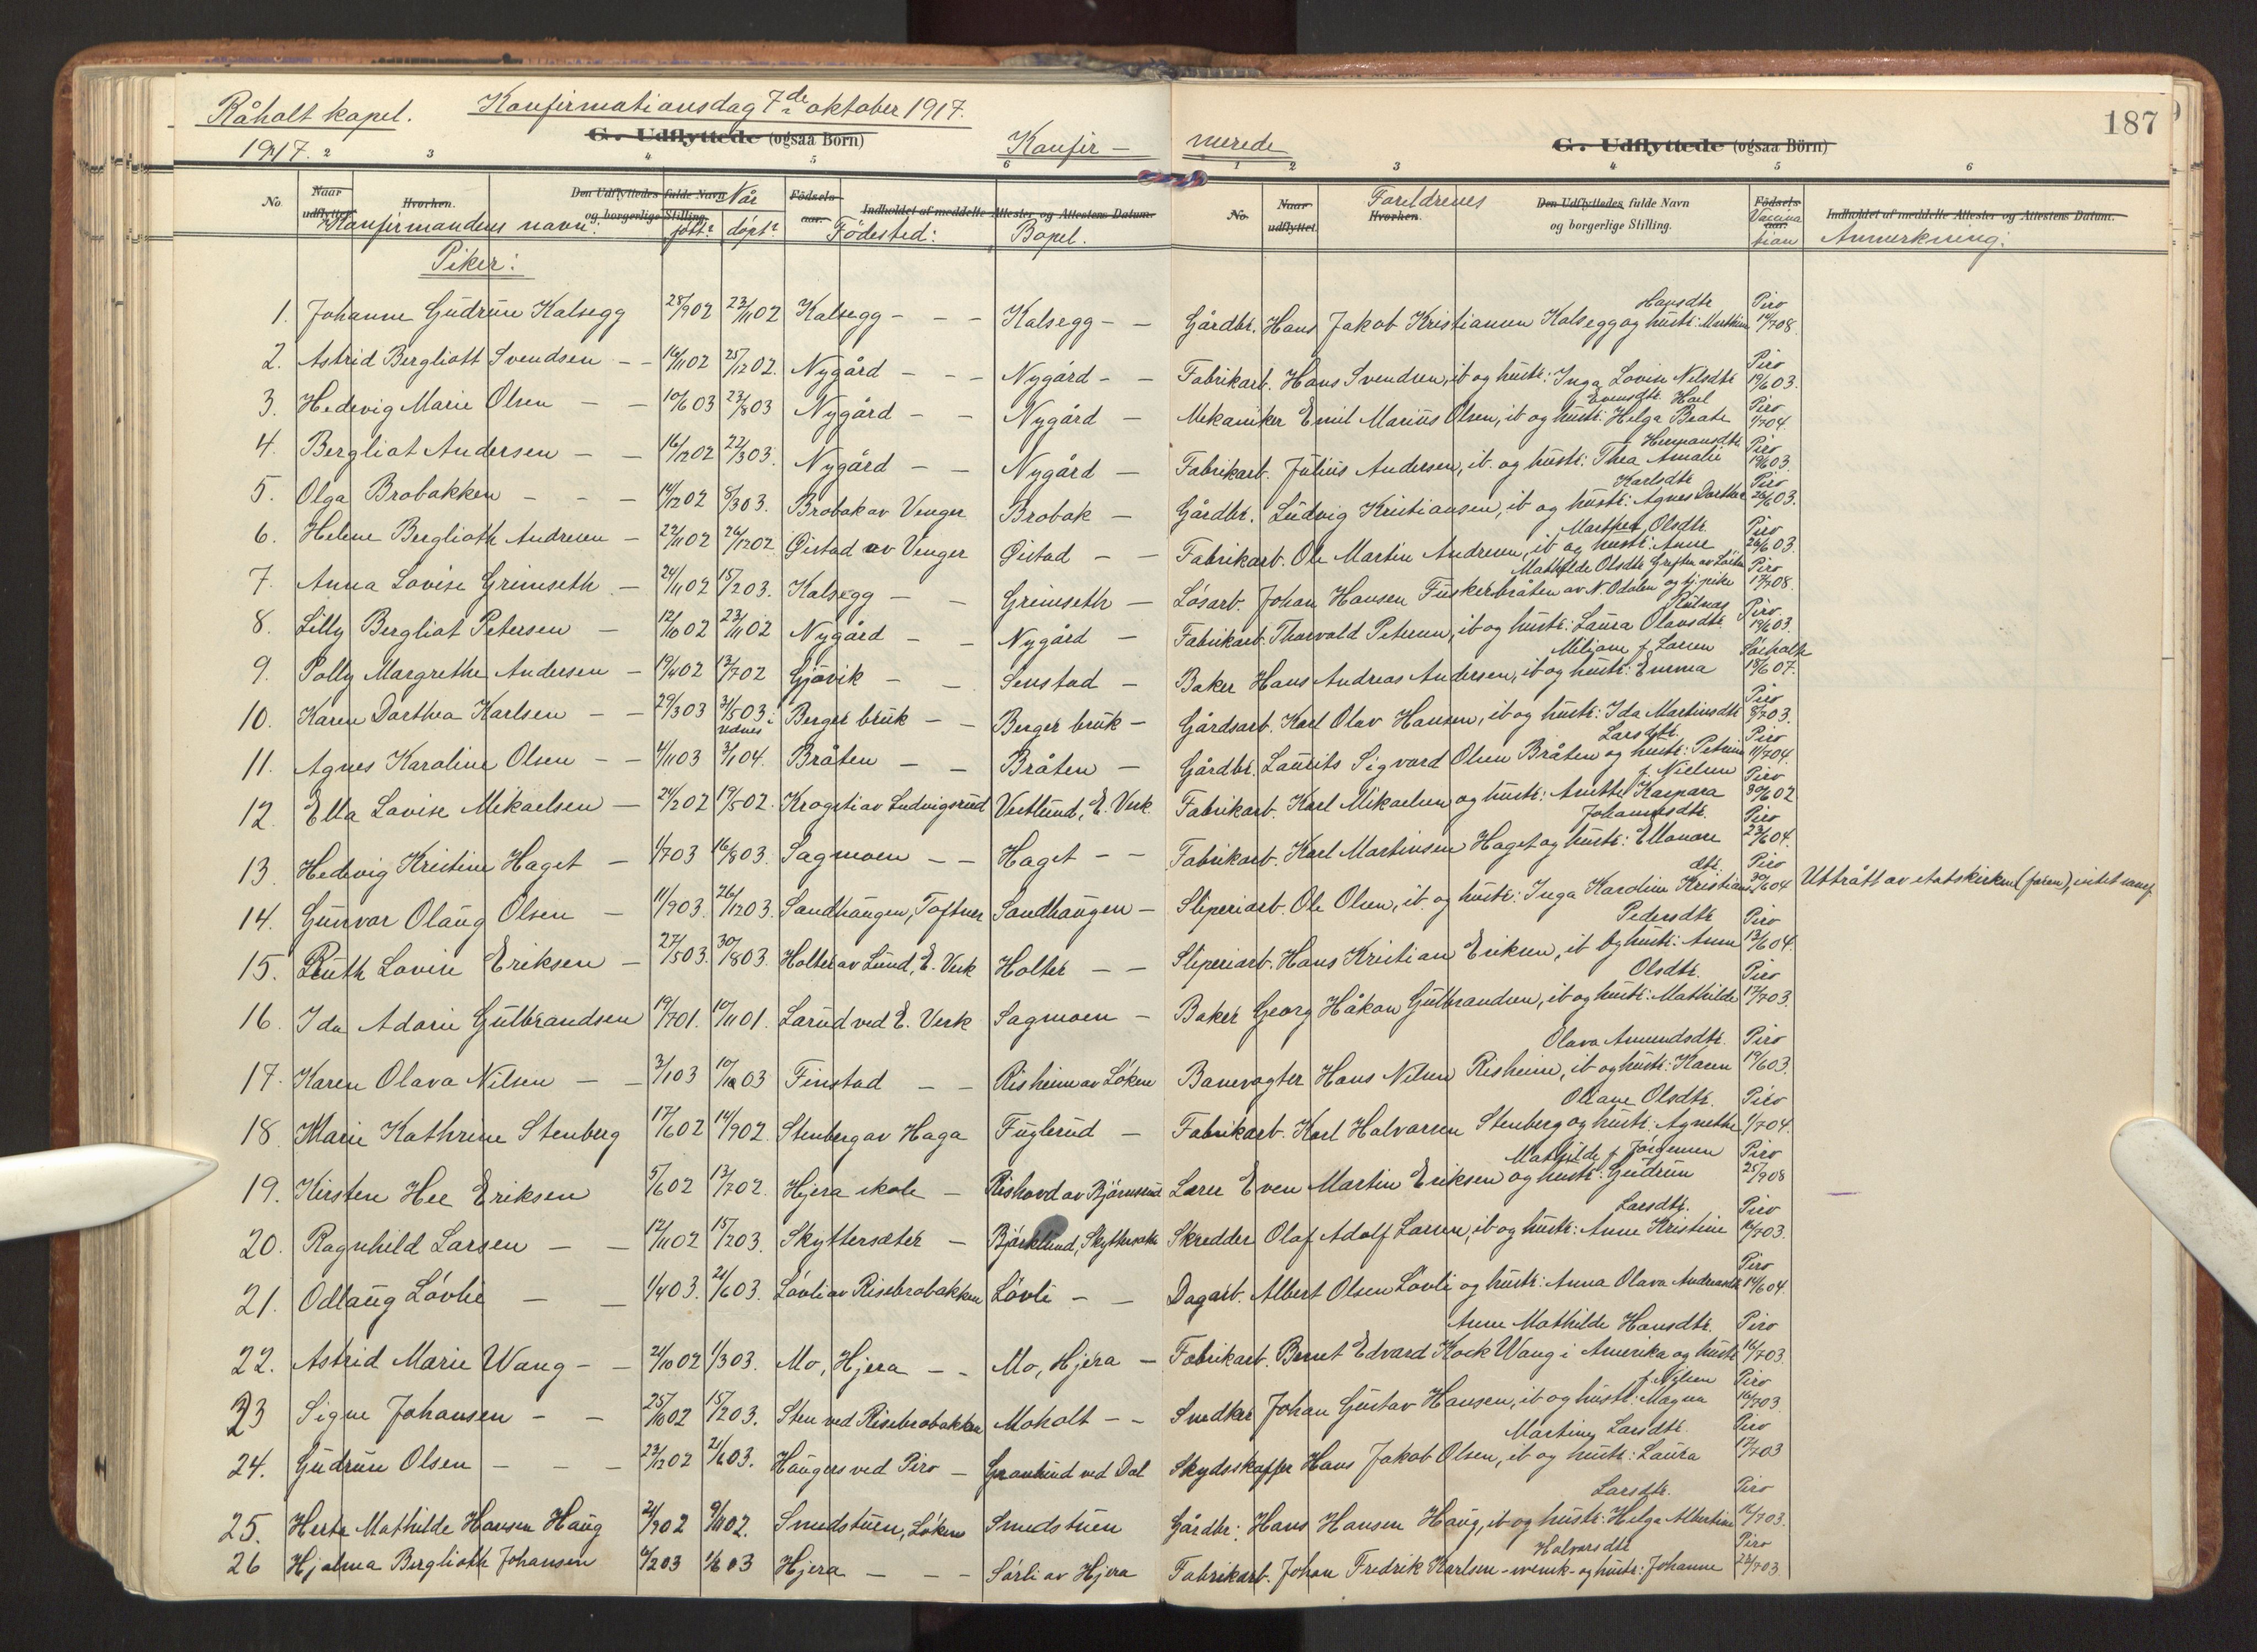 187
Råholt kapel. Konfirmationsdag 7de oktober 1917.
G. Udflyttede (ogsaa Börn) Konfir- merede G. Udflyttede (ogsaa Börn)
1917. 2 3 4 5 6 1 2 3 4 5 6
No. Naar udflyttet. Hvorhen. Den Udflyttedes fulde Navn og borgerlige Stilling. Födsels-aar. Indholdet af meddelte Attester og Attestens Datum. No. Naar udflyttet. Hvorhen. Den Udflyttedes fulde Navn og borgerlige Stilling. Födsels-aar. Indholdet af meddelte Attester og Attestens Datum.
Konfirmandens navn: Når født? døpt? Fødested: Bopel. Foreldrenes Vaccination Anmerkning:
Piker:
1. Johanne Gudrun Kalsegg 28/902 23/1102 Kalsegg - - - Kalsegg - - Gårdbr. Hans Jakob Kristiansen Kalsegg og hustr: Marthine Hansdtr Piro 14/708.
2. Astrid Bergliott Svendsen - - 16/1102 25/1202. Nygård - - - Nygård - - Fabrikarb. Hans Svendsen, ib og hustr: Inga Lovise Nilsdtr Piro 19/603.
3. Hedevig Marie Olsen - - 10/603 23/803 Nygård - - Nygård - Mekaniker Emil Marius Olsen, ib og hustr: Helga Beate Evensdtr. Hoel Piro 1/704.
4. Bergliot Andersen - - 16/1202 22/303. Nygård - - Nygård - Fabrikarb. Julius Andersen, ib. og hustr: Thea Amalie Hermansdtr Piro 19/603.
5. Olga Brobakken - - - 14/1202 8/303. Brobak av Venger Brobak - Gårdbr. Ludvig Kristiansen, ib og hustr: Agnes Dorthea Karlsdtr Piro 26/603.
6. Helene Berglioth Andresen - 22/1102 26/1202. Øistad av Venger Øistad - - Fabrikarb. Ole Martin Andresen, ib og hustr: Anne Marthea Olsdtr. Piro 26/603.
7. Anna Lovise Grimseth. - 24/1102 15/203. Kalsegg - - Gremseth - Løsarb. Johan Hansen Fuskerbråten av N. Odalen og tj. pike Mathilde Olsdtr Piro 17/708.
8. Lilly Bergliot Petersen - 12/1002 23/1102 Nygård - - Nygård - Fabrikarb. Thorvald Petersen, ib og hustr: Laura Olavsdtr. Piro. 19/603.
9. Polly Margrethe Andersen - 19/402 13/702 Gjøvik - - Senstad - Baker Hans Andreas Andersen, ib og hustr: Emma Miljane f. Larsen 18/607.
10. Karen Dorthea Karlsen - - 29/303 31/503. Berger bruk - - Berger bruk - Gårdsarb. Karl Olav Hansen, ib og hustr: Ida Martinsdtr Piro 8/703.
11. Agnes Karoline Olsen - - 4/1103 3/104. Bråten - - Bråten - Gårdbr. Laurits Sigvard Olsen Bråten og hustr: Petrine Larsdtr. Piro 11/704.
12. Ella Lovise Mikaelsen - 24/202 19/502. Krogsti av Ludvigsrud Vestlund, E. Verk. Fabrikarb. Karl Mikaelsen og hustr: Anette Kaspara f. Nielsen Piro 30/602
13. Hedevig Kristine Haget - 1/703 16/803. Sagmoen - - Haget - - Fabrikarb. Karl Martinsen Haget og hustr: Ellonore Johannesdtr. Piro 23/604.
14. Gunvor Olaug Olsen - 11/903. 26/1203. Sandhaugen, Toftner Sandhaugen - Sliperiarb. Ole Olsen, ib. og hustr: Inga Karoline Kristiansdtr. Piro 30/604 Uttrått av statskirken (faren),
15. Ruth Lovise Eriksen - 27/503. 30/803. Holter av Lund, E. Verk Holter - - Sliperiarb. Hans Kristian Eriksen, ib og hustr: Anne Pedersdtr Piro 13/604.
16. Ida Adorie Gulbrandsen 19/701. 10/1101. Lørud ved E. Verk Sagmoen - Baker Georg Håkon Gulbrandsen, ib og hustr: Mathilde Olsdtr. Piro 17/703.
17. Karen Olava Nilsen - - 3/103 10/1003 Finstad - - Risheim av Løken Banevogter Hans Nilsen Risheim, ib og hustr: Karen Olava Amundsdtr. Piro 19/603.
18. Marie Kathrine Stenberg 17/602 14/902. Stenberg av Haga Fuglerud - Fabrikarb. Karl Halvorsen Stenberg og hustr: Agnethe Oliane Olsdtr. Piro 1/704.
19. Kirsten Hee Eriksen 5/602 13/702. Hjera skole - Rishovd av Bjørnsrud Lærer Even Martin Eriksen og hustr: Gudrun Mathilde f. Jørgensen Piro 25/908
20. Ragnhild Larsen - - 12/1102 15/203. Skyttersæter - Bjørklund, Skyttersæter Skredder Olaf Adolf Larsen, ib og hustr: Anne Kristine Larsdtr. Piro 16/703.
21. Odlaug Løvlie - - 1/403. 21/603. Løvli av Risebrobakken Løvli - - Dagarb. Albert Olsen Løvli og hustr: Anna Olava Andreasdtr Piro 14/604.
22. Astrid Marie Wang - - 21/1002 1/303. Mo, Hjera - - Mo, Hjera - Fabrikarb. Bernt Edvard Kock Wang i Amerika og hustr Anne Mathilde Hansdtr. Piro 16/703.
23 Signe Johansen - - 25/1002 15/203. Sten ved Risebrobakken Moholt - - Snedker Johan Gustav Hansen, ib og hustr: Magna f. Nilsen Piro 16/703.
24. Gudrun Olsen - - - 23/1202 21/603. Haugers ved Piro - Granlund ved Dal Skydsskaffer Hans Jakob Olsen, ib og hustr: Laura Martine Larsdtr. Piro 17/703
25. Herta Mathilde Hansen Haug 21/902 9/1102. Smedstuen, Løken Smedstuen Gårdbr: Hans Hansen Haug, ib og hustr: Helga Albertine Larsdtr. Piro 16/703.
26 Hjalma Bergliotte Johansen 6/203 1/603 Hjera - - - Sørli av Hjera Fabrikarb. Johan Fredrik Karlsen - svensk - og hustr: Johanne Halvorsdtr Piro 22/703.